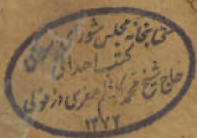 کتابخانه مجلس شورای
کتب اهدائی
حاج شیخ محمد کاظم معزی دزفولی
۱۳۷۲